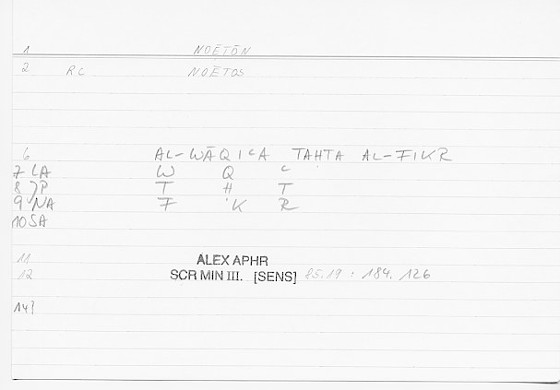 1 NOĒTŌN
2 RC NOĒTOS
6 AL-WĀQIʿA TAHTA AL-FIKR
7 LA W Q ʿ
8 JP T H T
9 NA F K R
10 SA
11 ALEX APHR
12 SCR MIN III. [SENS] 85.19 : 184.126
14?